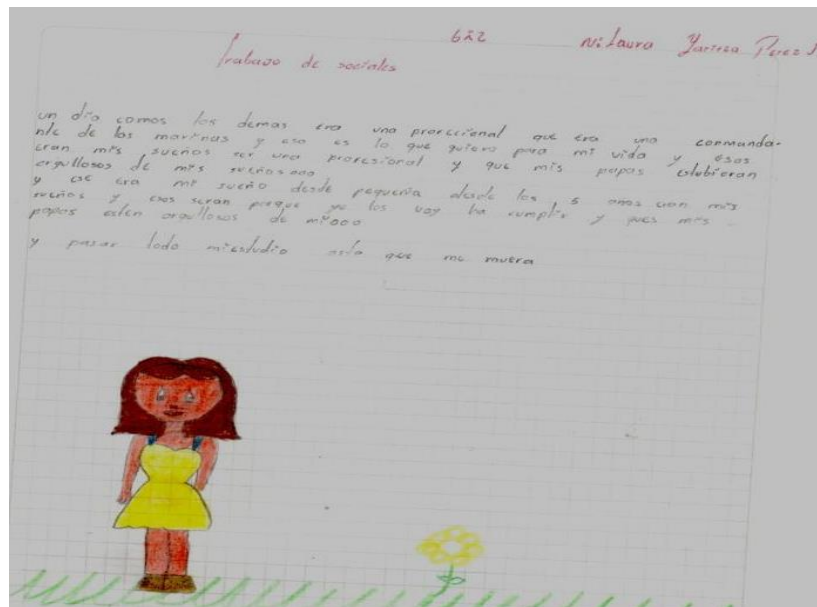 6º2 N: Laura Yaritza Perez
trabago de sociales
un día comos los demas era una profecional que era una conmanda-
nte de los marinas y eso es lo que quiero para mi vida y esos
eran mis sueños ser una profesional y que mis papas estubieran
orgullosos de mis sueños ooo
y ese era mi sueño desde pequeña desde los 5 años son mis
sueños y esos seran porque yo los voy ha cumplir y ques mis
papas esten orgullosos de miooo
y pasar todo miestudio asta que me muera